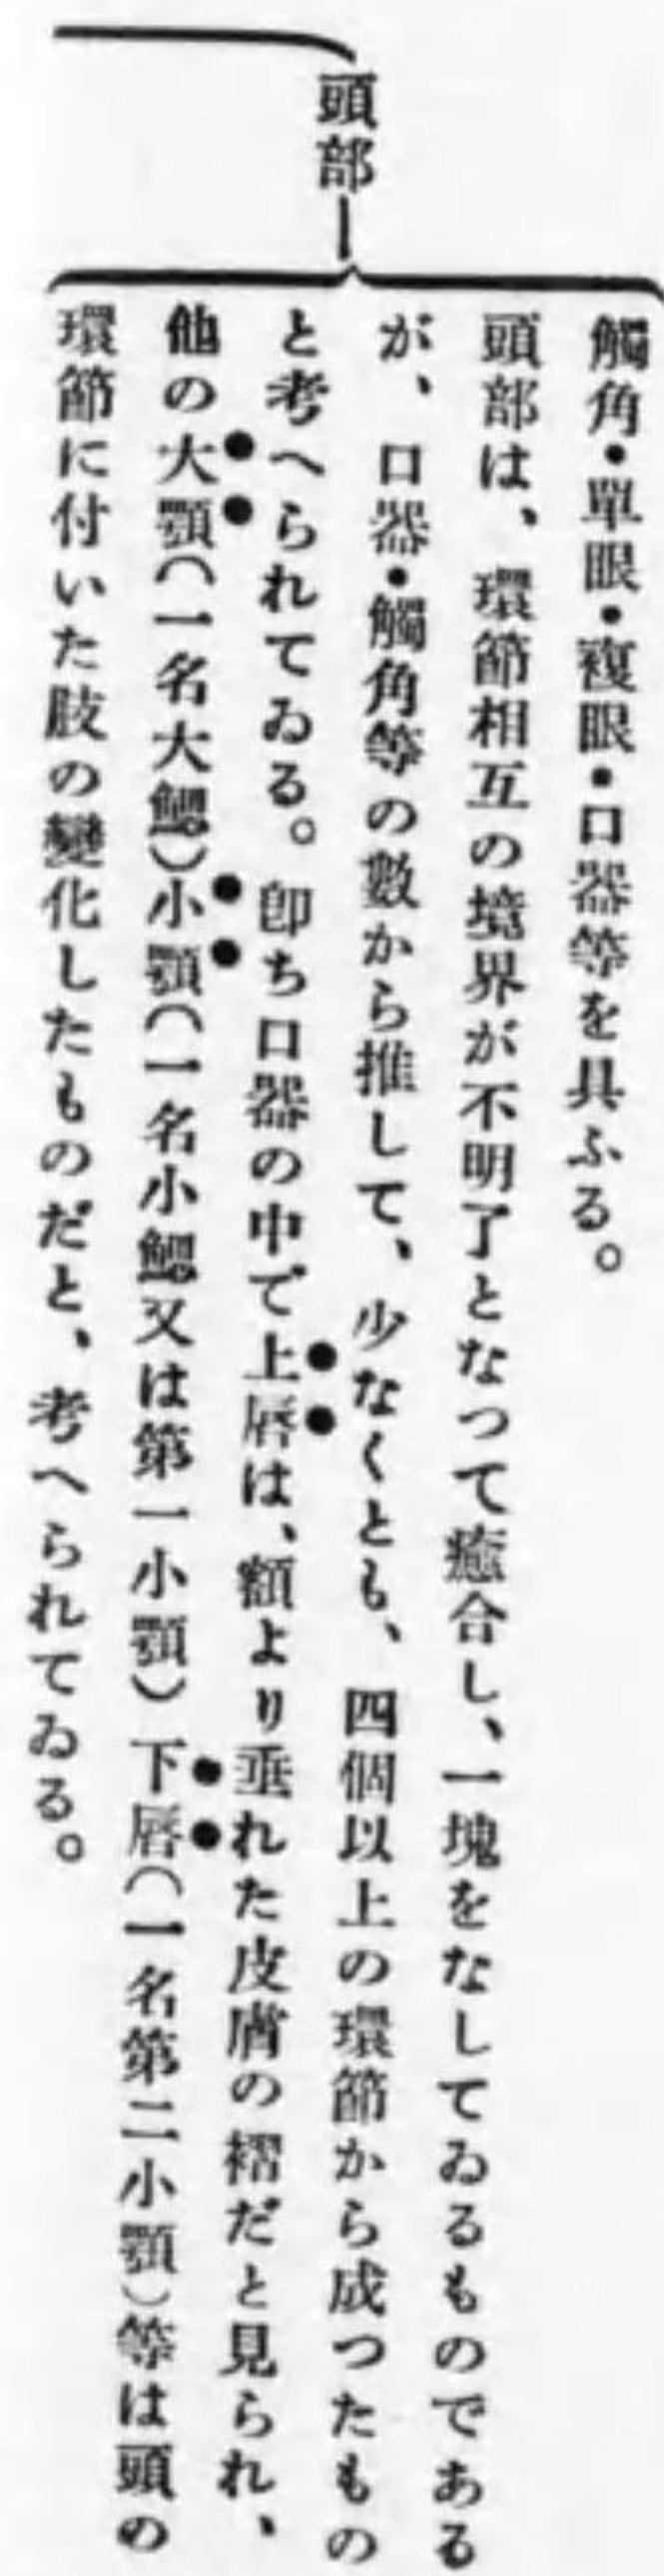 頭部
觸角・單眼・複眼・口器等を具ふる。
頭部は、環節相互の境界が不明了となつて癒合し、一塊をなしてゐるものである
が、口器・觸角等の數から推して、少なくとも、四個以上の環節から成つたもの
と考へられてゐる。卽ち口器の中で上唇は、額より垂れた皮膚の褶だと見られ、
他の大顎(一名大鰓)小顎(一名小鰓又は第一小顎)下唇(一名第二小顎)等は頭の
環節に付いた肢の變化したものだと、考へられてゐる。